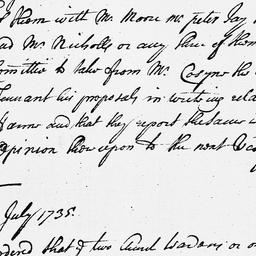 of them with Mr. Moore mr. Peter Jay
and Mr. Nicholls or any three of them
Committee to take from Mr. Cosyne the
Tennant his proposals in writing rela
Same and that they report the same
Opinion thereupon to the next
July 1735.
ordered that ye two Church wardens or